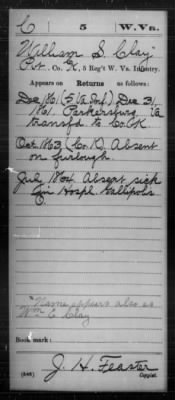 C | 5 | W. Va.
William S. Clay
Pvt., Co. K, 5 Reg't W. Va. Infantry.
Appears on
Returns as follows:
Dec 1861 (5 Va Inf.) Dec 31,
1861. Parkersburg Va
transfd to Co. K
Oct. 1863 (Co. K) Absent
on furlough
July 1864 Absent sick
Hospl. Gallipolis
Name appears also as
Wm C Clay
Book mark:
J. H. Feaster
(546) Copyist.